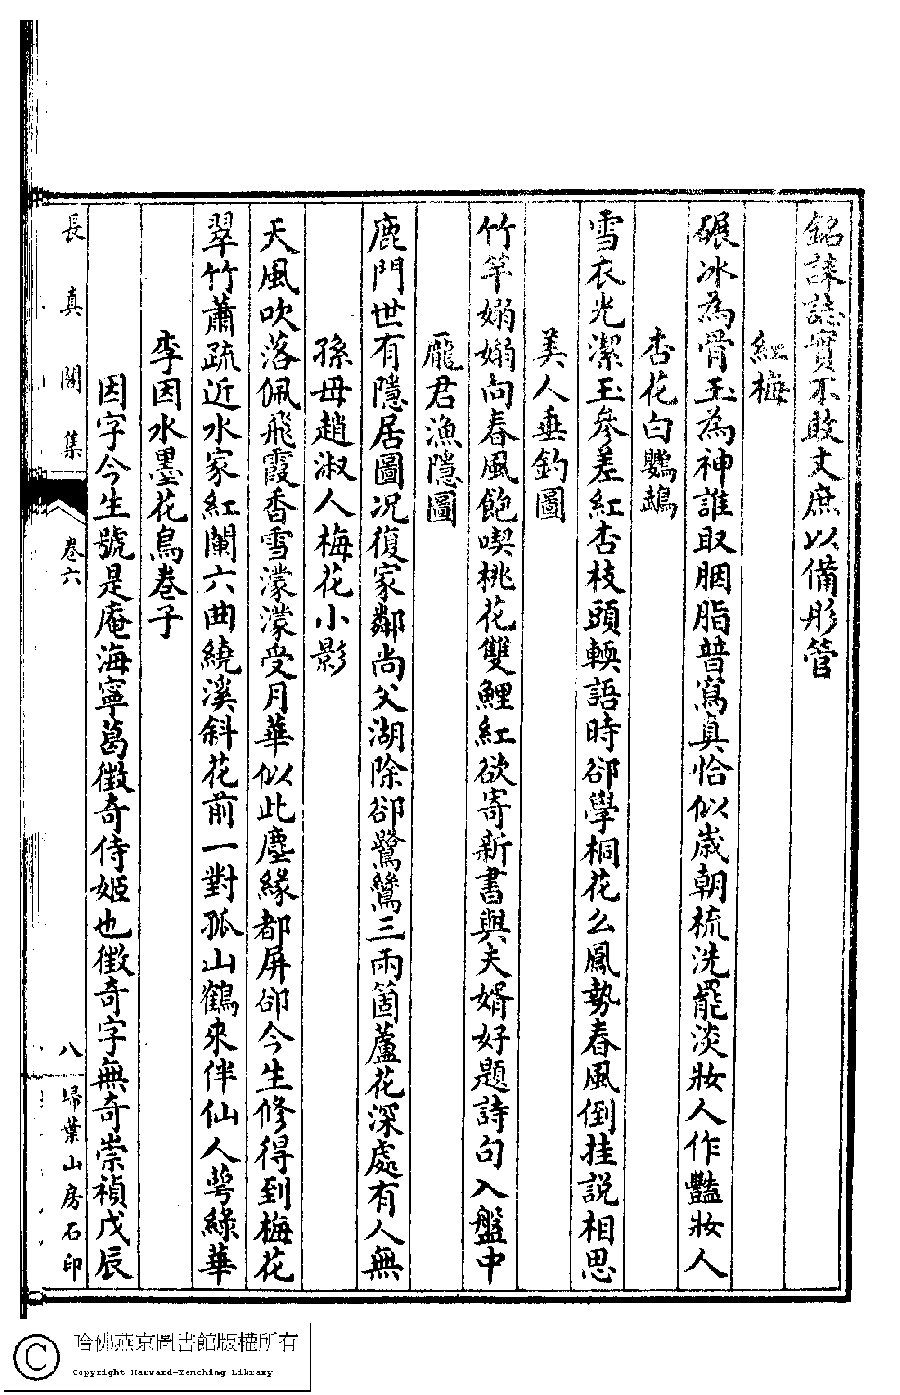 銘誄誌實不敢文庶以備彤管
紅梅
碾冰為骨玉為神誰取胭脂普寫真恰似歲朝梳洗罷淡妝人作豔妝人
杏花白鸚鵡
雪衣光潔玉參差紅杏枝頭輭語時卻學桐花么鳳勢春風倒挂說相思
美人垂釣圖
竹竿嫋嫋向春風飽喫桃花雙鯉紅欲寄新書與夫婿好題詩句入盤中
龐君漁隱圖
鹿門世有隱居圖况復家鄰尚父湖除卻鷺鷥三兩箇蘆花深處有人無
孫母趙淑人梅花小影
天風吹落佩飛霞香雪濛濛受月華似此塵緣都屏卻今生修得到梅花
翠竹蕭疏近水家紅闌六曲繞溪斜花前一對孤山鶴來伴仙人萼綠華
李因水墨花鳥卷子
因字今生號是庵海寧葛徵奇侍姬也徵奇字無奇崇禎戊辰
長真閣集
卷六
八
埽葉山房石印
© 哈佛燕京圖書館版權所有
Copyright Harvard-Yenching Library